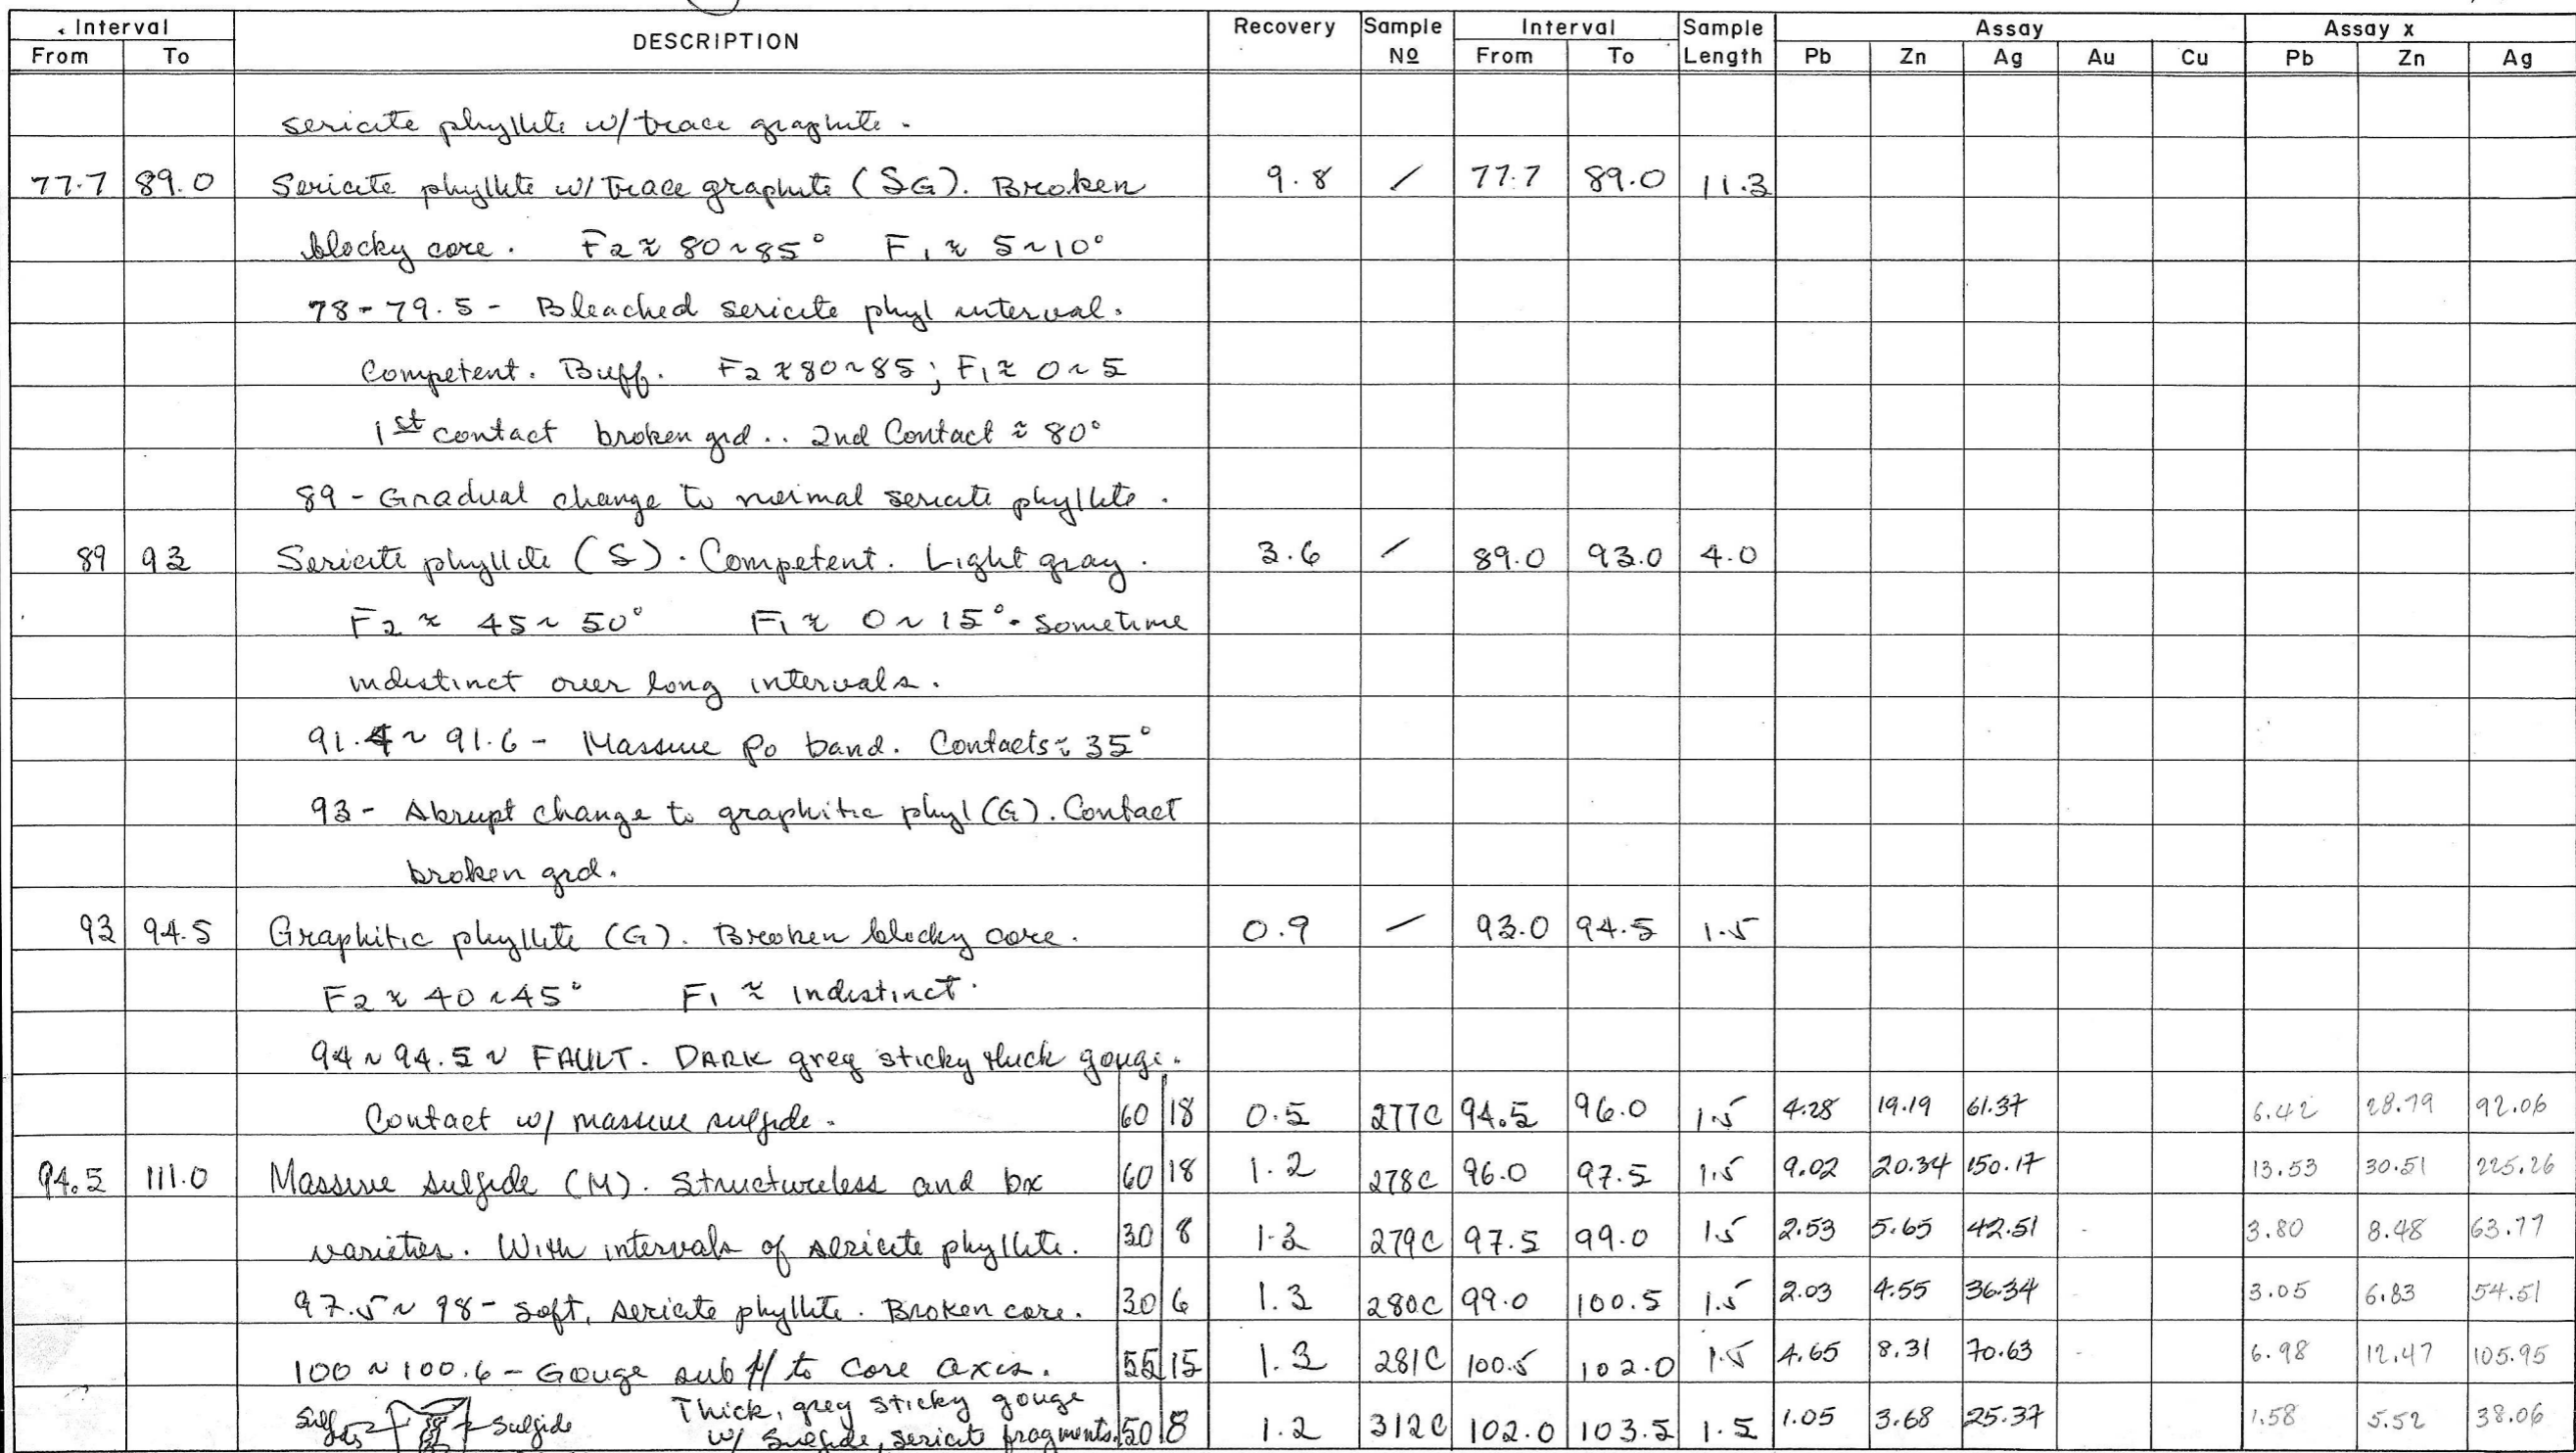 Interval DESCRIPTION Recovery Sample Interval Sample Assay Assay x
From To Nº From To Length Pb Zn Ag Au Cu Pb Zn Ag
sericite phyllite w/ trace graphite.
77.7 89.0 Sericite phyllite w/ Trace graphite (SG). Broken 9.8 / 77.7 89.0 11.3
blocky core. F2 ≈ 80~85° F1 ≈ 5~10°
78-79.5 - Bleached sericite phyl interval.
Competent. Buff. F2 ≈ 80~85; F1 ≈ 0~5
1st contact broken grd.. 2nd Contact ≈ 80°
89 - Gradual change to normal sericite phyllite.
89 93 Sericite phyllite (S). Competent. Light gray. 3.6 / 89.0 93.0 4.0
F2 ≈ 45~50° F1 ≈ 0~15°. Sometime
indistinct over long intervals.
91.4~91.6 - Massive po band. Contacts ≈ 35°
93 - Abrupt change to graphitic phyl (G). Contact
broken grd.
93 94.5 Graphitic phyllite (G). Broken blocky core. 0.9 / 93.0 94.5 1.5
F2 ≈ 40~45° F1 ≈ Indistinct.
94~94.5 ~ FAULT. DARK grey sticky thick gouge.
Contact w/ massive sulfide. 60 18 0.5 277C 94.5 96.0 1.5 4.28 19.19 61.37 6.42 28.79 92.06
94.5 111.0 Massive sulfide (M). Structureless and bx 60 18 1.2 278C 96.0 97.5 1.5 9.02 20.34 150.17 13.53 30.51 225.26
varieties. With intervals of sericite phyllite. 30 8 1.3 279C 97.5 99.0 1.5 2.53 5.65 42.51 3.80 8.48 63.77
97.5~98 - Soft, sericite phyllite. Broken core. 30 6 1.3 280C 99.0 100.5 1.5 2.03 4.55 36.34 3.05 6.83 54.51
100~100.6 - Gouge sub // to core axis. 55 15 1.3 281C 100.5 102.0 1.5 4.65 8.31 70.63 6.98 12.47 105.95
Sulfide Thick, grey sticky gouge
w/ Sulfide, sericite fragments. 50 8 1.2 312C 102.0 103.5 1.5 1.05 3.68 25.37 1.58 5.52 38.06